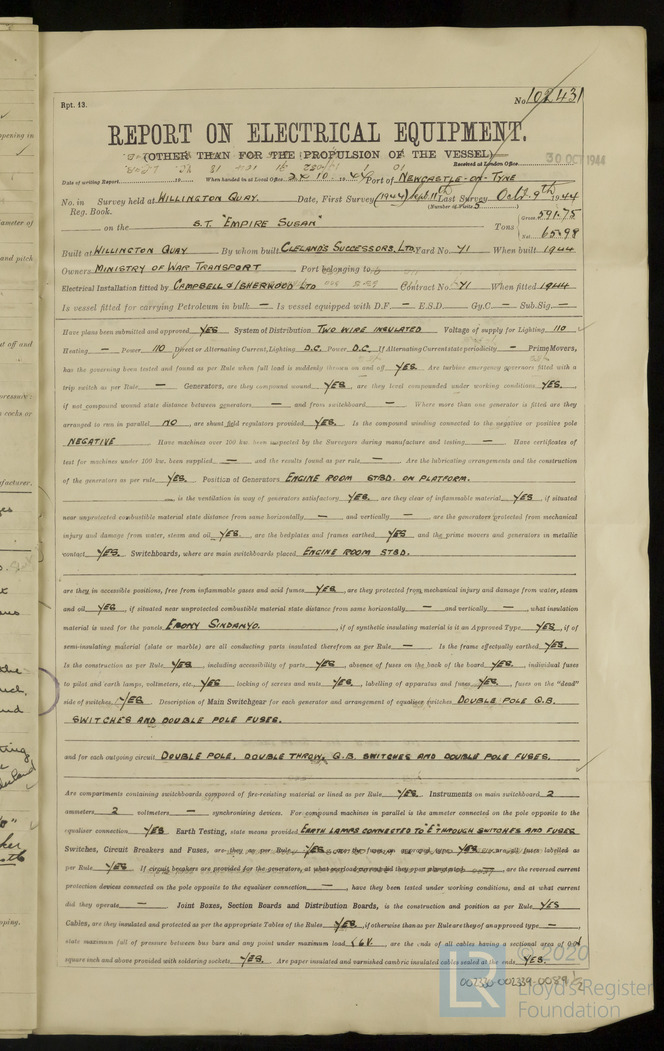 Rpt. 13.
No. 102431
REPORT ON ELECTRICAL EQUIPMENT.
(OTHER THAN FOR THE PROPULSION OF THE VESSEL)
30 OCT 1944
Received at London Office
Date of writing Report 19 When handed in at Local Office 24.10.1944 Port of NEWCASTLE-ON-TYNE
No. in Survey held at WILLINGTON QUAY. Date, First Survey (1944) Sept 11th Last Survey Oct. 9th 1944
Reg. Book. (Number of Visits 5)
on the S.T. "EMPIRE SUSAN" Tons Gross 591.75
Net 65.98
Built at WILLINGTON QUAY By whom built CLELAND'S SUCCESSORS, LTD. Yard No. 71 When built 1944
Owners MINISTRY OF WAR TRANSPORT Port belonging to
Electrical Installation fitted by CAMPBELL & ISHERWOOD LTD Contract No. 71 When fitted 1944
Is vessel fitted for carrying Petroleum in bulk — Is vessel equipped with D.F. — E.S.D. — Gy.C — Sub.Sig. —
Have plans been submitted and approved YES System of Distribution TWO WIRE INSULATED Voltage of supply for Lighting 110
Heating — Power 110 Direct or Alternating Current, Lighting D.C. Power D.C. If Alternating Current state periodicity — Prime Movers,
has the governing been tested and found as per Rule when full load is suddenly thrown on and off YES. Are turbine emergency governors fitted with a
trip switch as per Rule — Generators, are they compound wound YES, are they level compounded under working conditions YES,
if not compound wound state distance between generators — and from switchboard — Where more than one generator is fitted are they
arranged to run in parallel NO, are shunt field regulators provided YES. Is the compound winding connected to the negative or positive pole
NEGATIVE Have machines over 100 kw. been inspected by the Surveyors during manufacture and testing — Have certificates of
test for machines under 100 kw. been supplied — and the results found as per rule — Are the lubricating arrangements and the construction
of the generators as per rule YES. Position of Generators ENGINE ROOM STBD. ON PLATFORM.
is the ventilation in way of generators satisfactory YES. are they clear of inflammable material YES if situated
near unprotected combustible material state distance from same horizontally — and vertically —, are the generators protected from mechanical
injury and damage from water, steam and oil YES, are the bedplates and frames earthed YES and the prime movers and generators in metallic
contact YES. Switchboards, where are main switchboards placed ENGINE ROOM STBD.
are they in accessible positions, free from inflammable gases and acid fumes YES, are they protected from mechanical injury and damage from water, steam
and oil YES, if situated near unprotected combustible material state distance from same horizontally — and vertically —, what insulation
material is used for the panels EBONY SINDANYO., if of synthetic insulating material is it an Approved Type YES, if of
semi-insulating material (slate or marble) are all conducting parts insulated therefrom as per Rule — Is the frame effectually earthed YES.
Is the construction as per Rule YES, including accessibility of parts YES, absence of fuses on the back of the board YES, individual fuses
to pilot and earth lamps, voltmeters, etc. YES locking of screws and nuts YES, labelling of apparatus and fuses YES, fuses on the "dead"
side of switches YES. Description of Main Switchgear for each generator and arrangement of equaliser switches DOUBLE POLE Q.B.
SWITCHES AND DOUBLE POLE FUSES.
and for each outgoing circuit DOUBLE POLE, DOUBLE THROW, Q.B. SWITCHES AND DOUBLE POLE FUSES.
Are compartments containing switchboards composed of fire-resisting material or lined as per Rule YES. Instruments on main switchboard 2
ammeters 2 voltmeters — synchronising devices. For compound machines in parallel is the ammeter connected on the pole opposite to the
equaliser connection YES Earth Testing, state means provided EARTH LAMPS CONNECTED TO "E" THROUGH SWITCHES AND FUSES
Switches, Circuit Breakers and Fuses, are they as per Rule YES, are the fuses an approved type YES are all fuses labelled as
per Rule YES If circuit breakers are provided for the generators, at what overload current did they open when tested, are the reversed current
protection devices connected on the pole opposite to the equaliser connection —, have they been tested under working conditions, and at what current
did they operate — Joint Boxes, Section Boards and Distribution Boards, is the construction as per Rule YES
Cables, are they insulated and protected as per the appropriate Tables of the Rules YES, if otherwise than as per Rule are they of an approved type —
state maximum fall of pressure between bus bars and any point under maximum load <6V. are the ends of all cables having a sectional area of 0.04
square inch and above provided with soldering sockets YES. Are paper insulated and varnished cambric insulated cables sealed at the ends YES.
© 2020
LR
Lloyd's Register
Foundation
002330-002339-0089 1/2